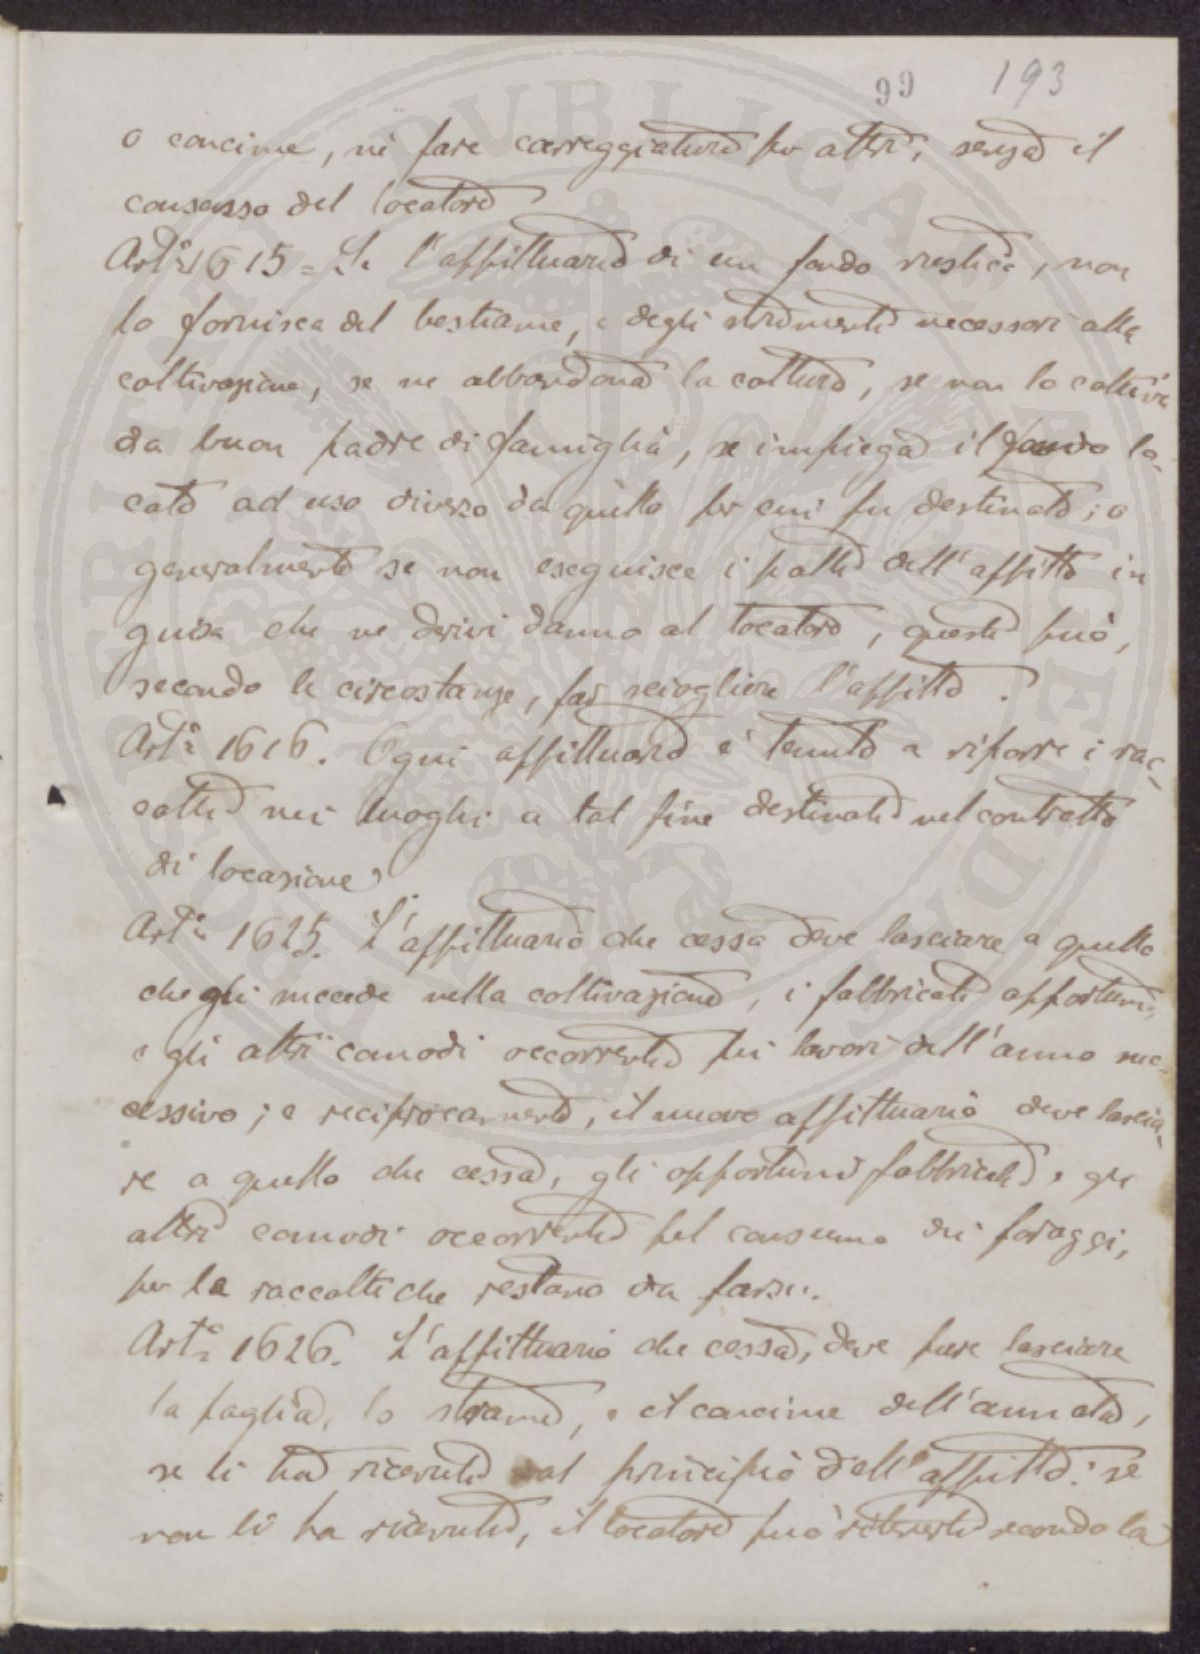 99 193
o concime, nè fare carreggiature per altri, senza il
consenso del locatore
Art.º 1615 = Se l'affittuario di un fondo rustico, non
lo fornisca del bestiame, e degli strumenti necessari alla
coltivazione, se ne abbandona la coltura, se non lo coltiva
da buon padre di famiglia, se impiega il fondo lo-
cato ad uso diverso da quello per cui fu destinato; o
generalmente se non eseguisce i patti dell'affitto in
guisa che ne derivi danno al locatore, questi può,
secondo le circostanze, far sciogliere l'affitto.
Art.º 1616. Ogni affittuario è tenuto a riporre i rac-
colti nei luoghi a tal fine destinati nel contratto
di locazione.
Art.º 1625. L'affittuario che cessa deve lasciare a quello
che gli succede nella coltivazione, i fabbricati opportuni,
e gli altri comodi occorrenti pei lavori dell'anno suc-
cessivo; e reciprocamente, il nuovo affittuario deve lascia-
re a quello che cessa, gli opportuni fabbricati e gli
altri comodi occorrenti pel consumo dei foraggi,
per le raccolte che restano da farsi.
Art.º 1626. L'affittuario che cessa, deve pure lasciare
la paglia, lo strame, e il concime dell'annata,
se li ha ricevuti al principio dell'affitto: se
non li ha ricevuti, il locatore può ritenerli secondo la